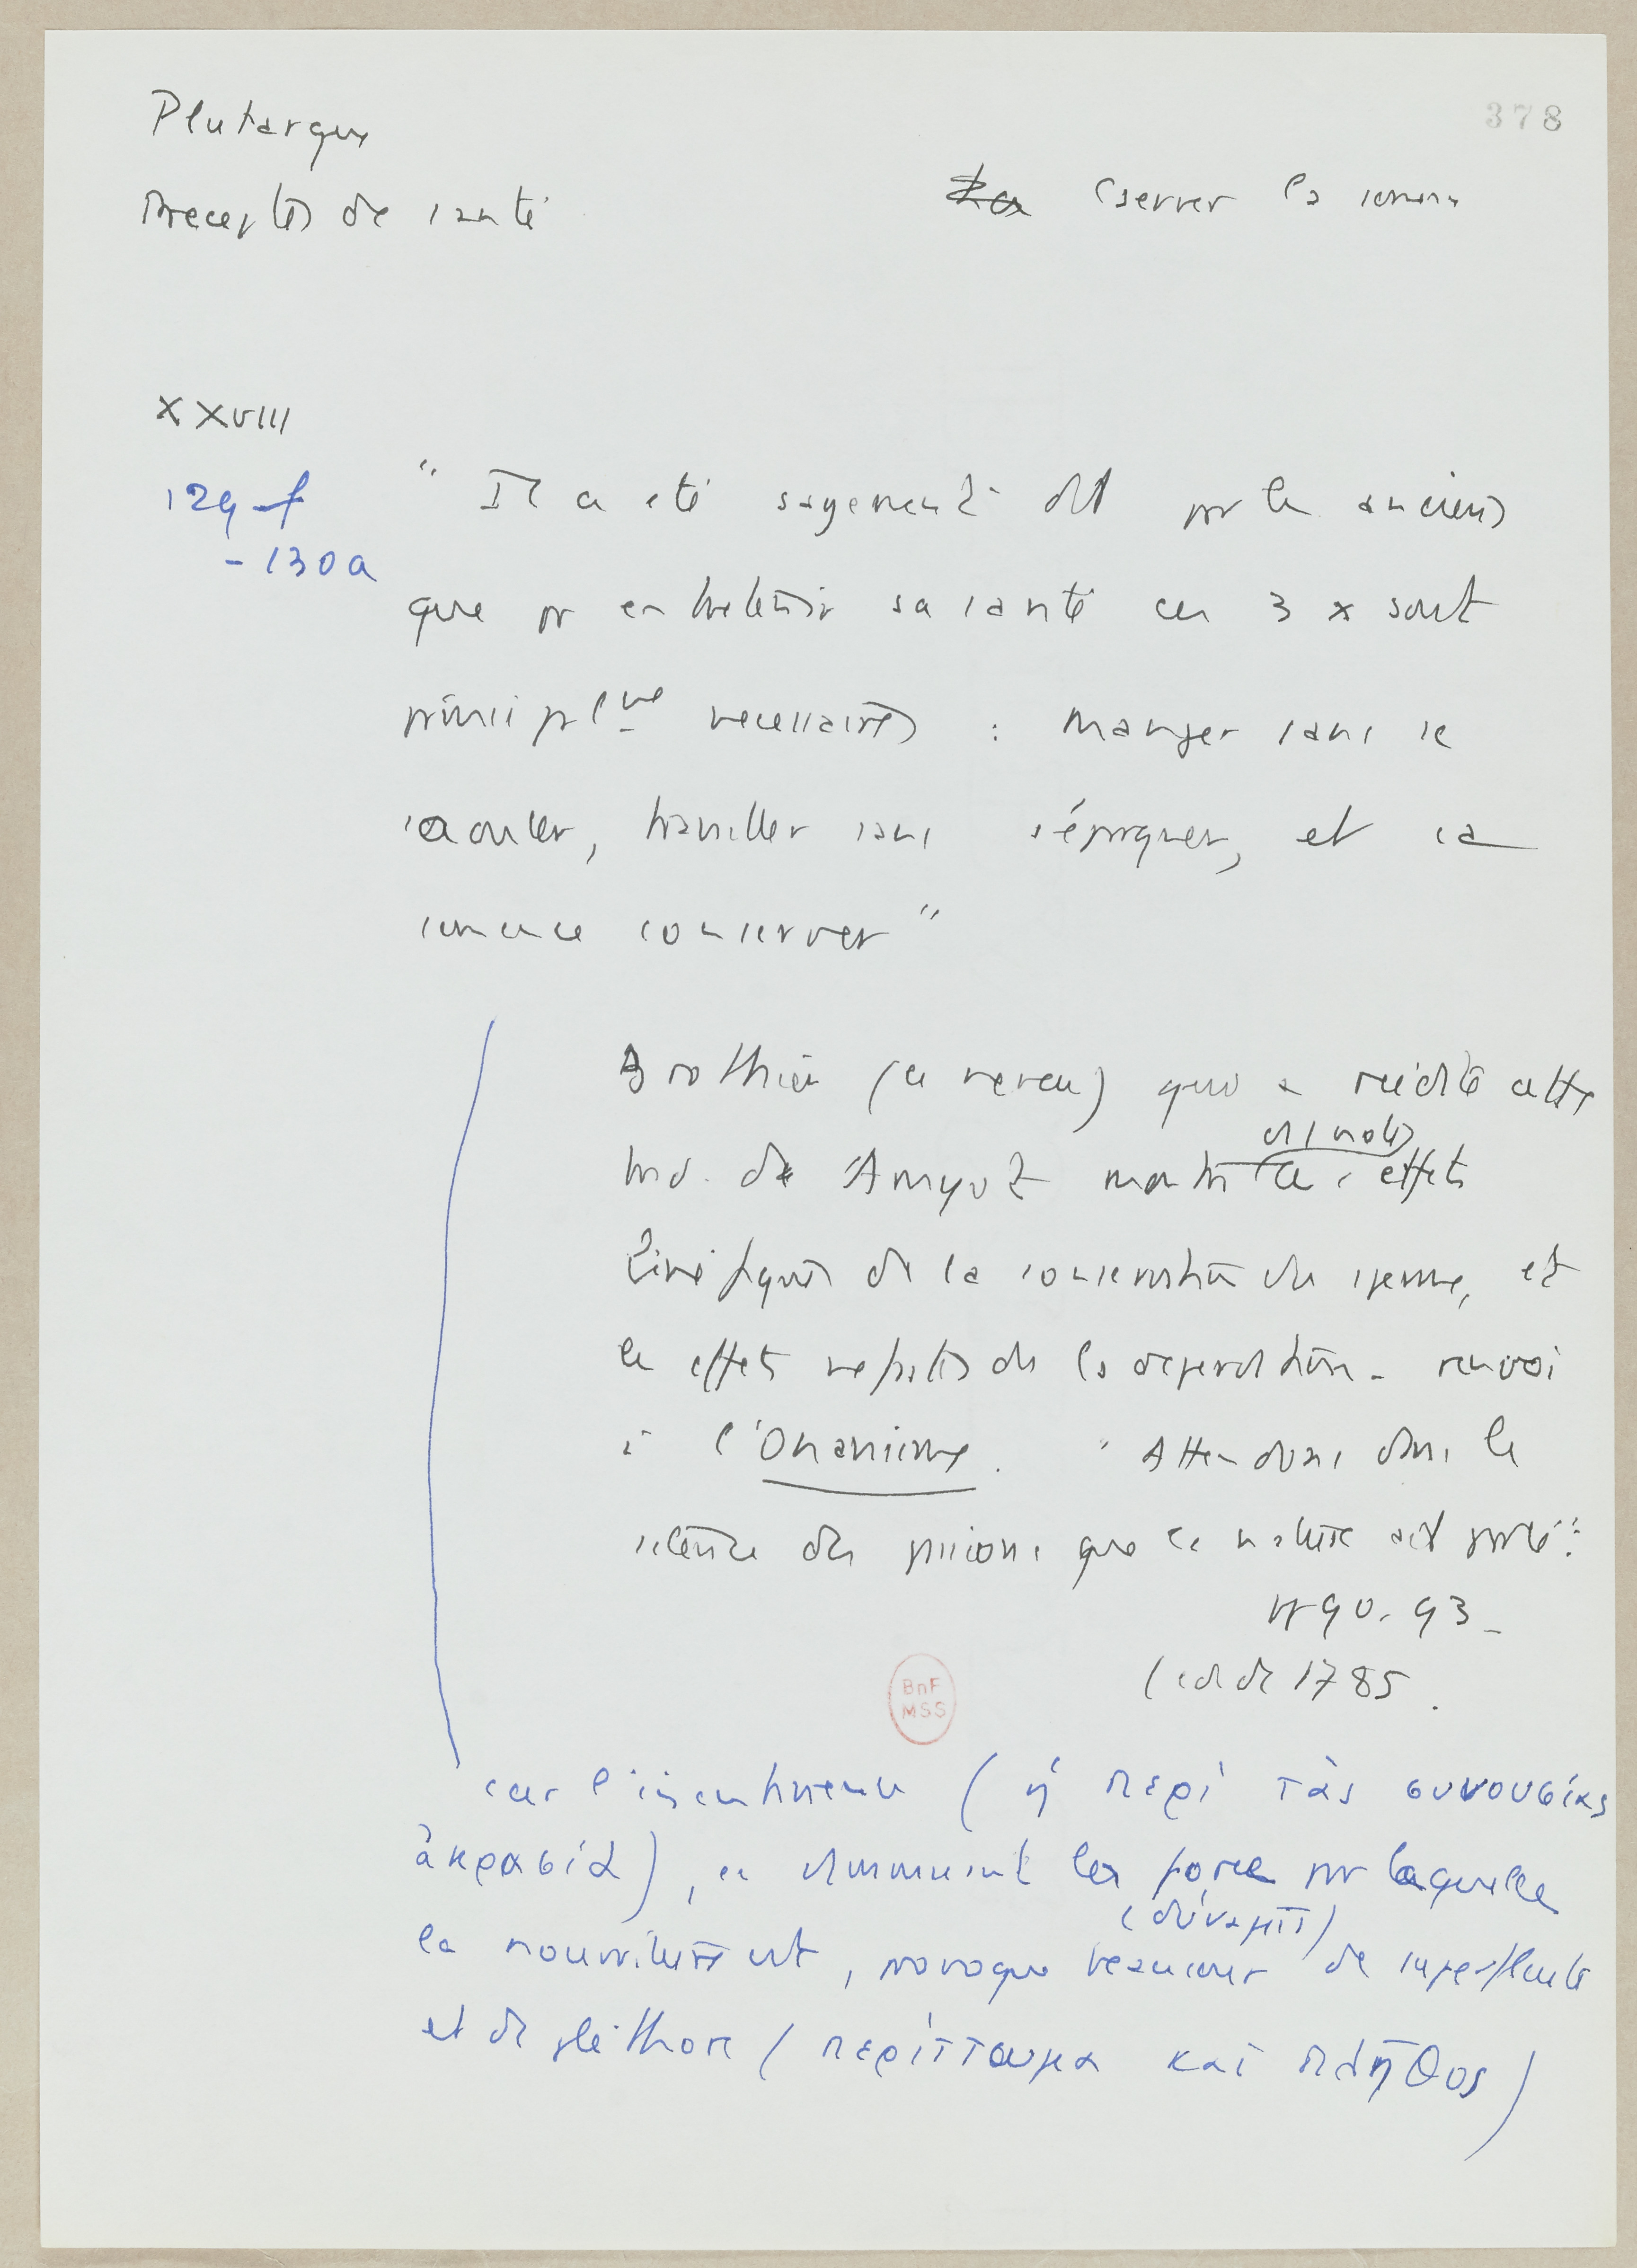 378
Plutarque
Preceptes de santé
Cserver la semence
XXVIII
129 f
- 130 a
" Il a eté sagement dit pr les anciens
que pr entretenir sa santé ces 3 x sont
principlmt necessaires : manger sans se
saouler, travailler sans s'épargner, et sa
semence conserver "
Brothier (le neveu) qui a réédité cette
trad. de Amyot montre ds 1 note les effets
bénéfiques de la conservation du sperme, et
les effets néfastes de la déperdition - renvoi
à l'Onanisme. " Attendons dans le
silence des passions que la nature ait parlé":
pp 90-93 -
(ed de 1785.
car l'incontinence (ἡ περὶ τὰς συνουσίας
ἀκρασία), en diminuant la force par laquelle
(δύναμις)
la nourriture cuit, provoque beaucoup de superfluité
et de pléthore (περίττωμα καὶ πλῆθος)
BnF
MSS